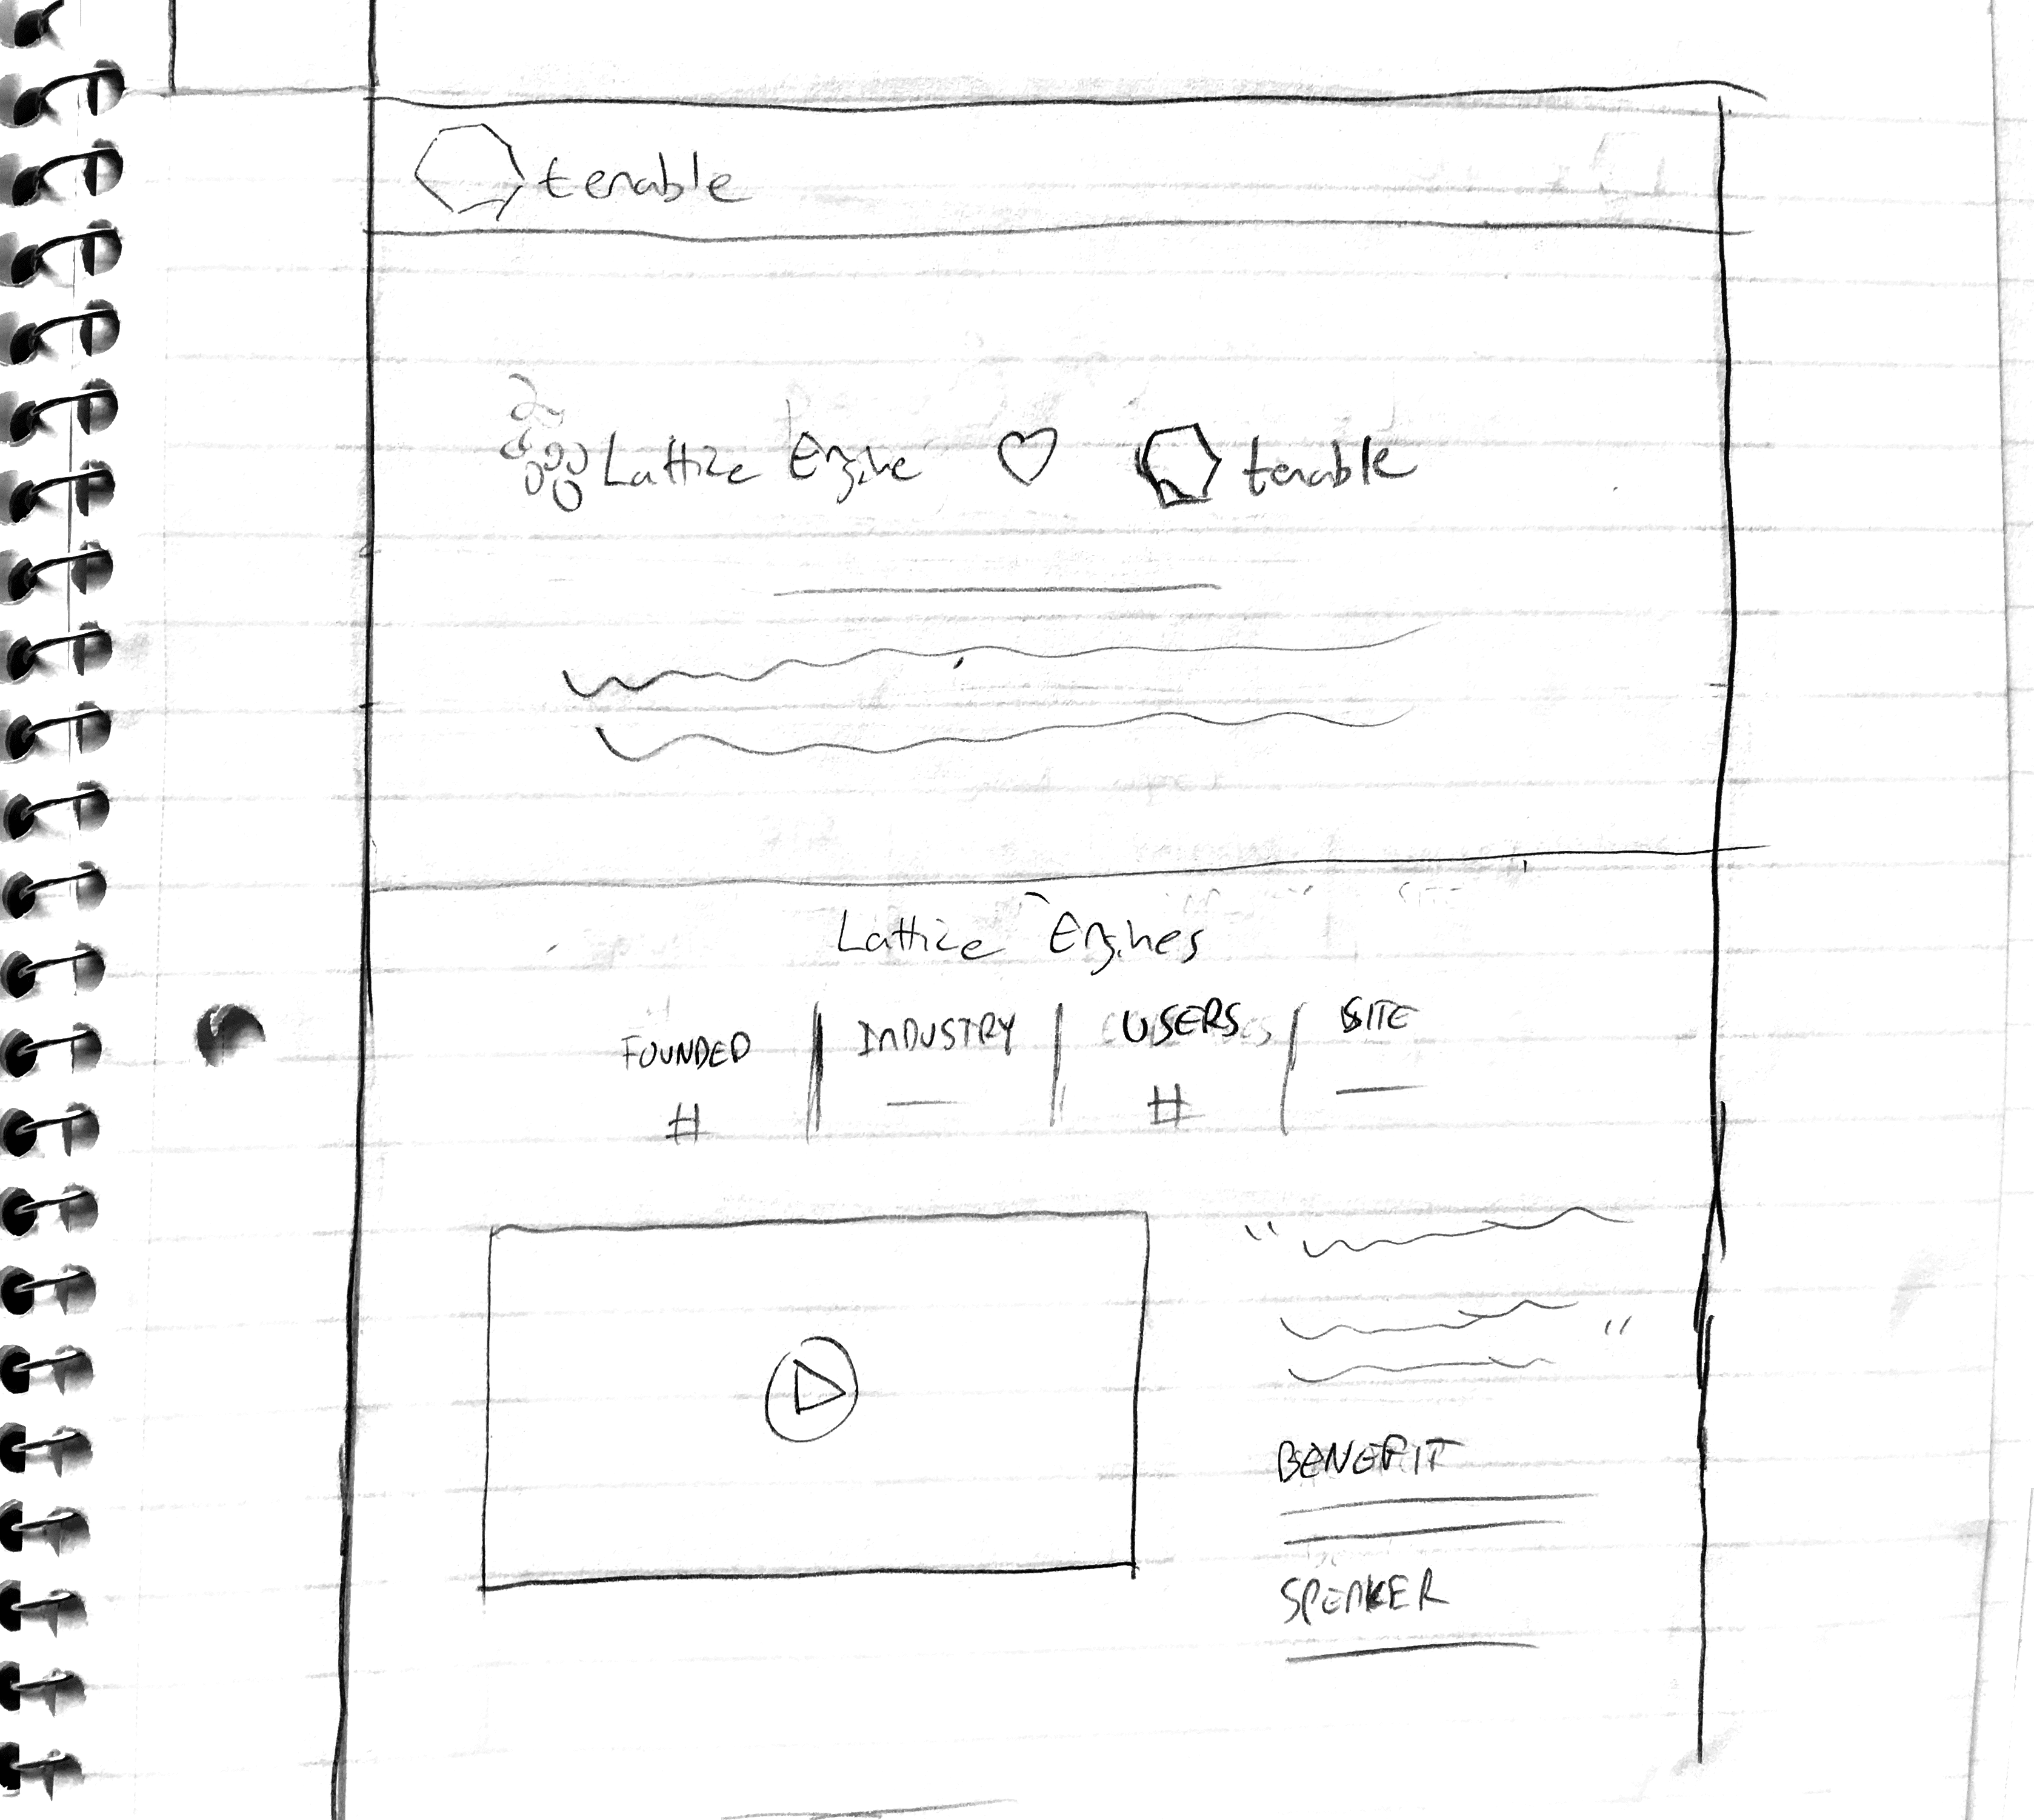 tenable
Lattice Engine ♡ tenable
Lattice Engines
FOUNDED | INDUSTRY | USERS | SITE
# — # —
“ ”
BENEFIT
SPEAKER